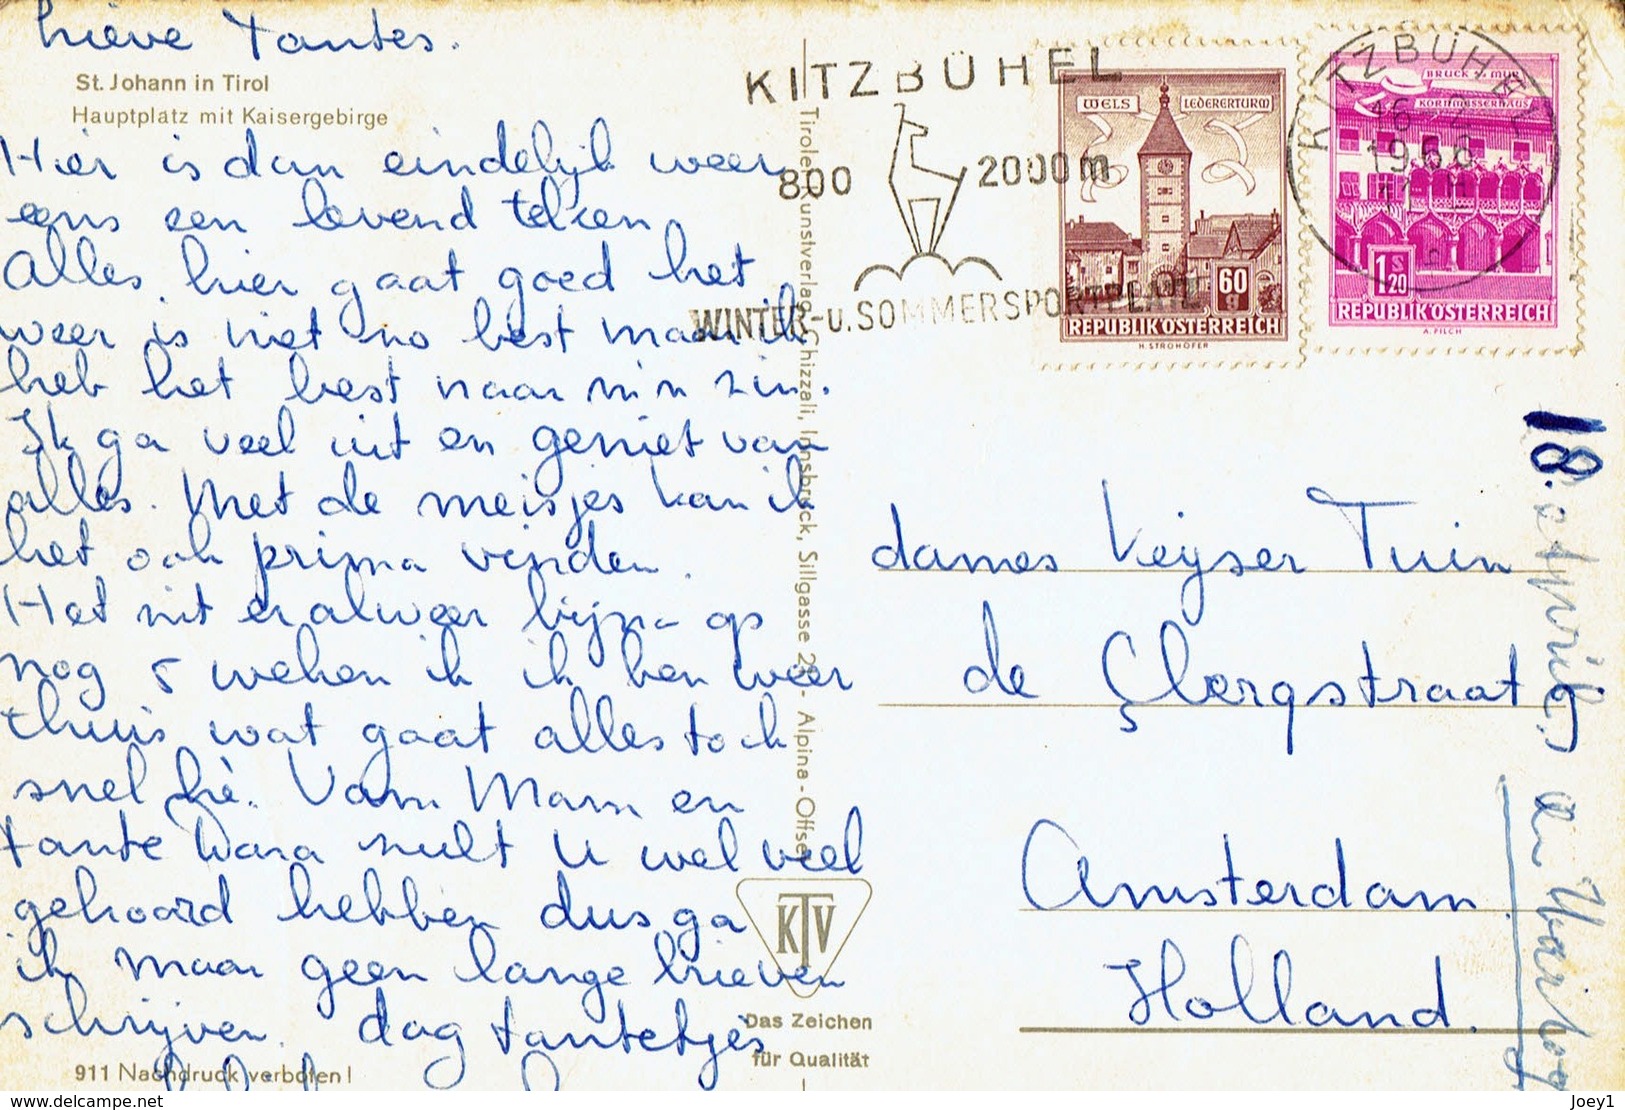 lieve Tantes.
St. Johann in Tirol
Hauptplatz mit Kaisergebirge
Hier is dan eindelijk weer
eens een levend teken
Alles hier gaat goed het
weer is niet zo best maar ik
heb het best naar m'n zin.
Ik ga veel uit en geniet van
alles. Met de meisjes kan ik
het ook prima vinden.
Het zit er alweer bijna op
nog 5 weken ik ik ben weer
thuis wat gaat alles toch
snel hè. Van Mam en
tante Wara zult U wel veel
gehoord hebben dus ga
ik maar geen lange brieven
schrijven. dag tantetjes
911 Nachdruck verboten!
Tiroler Kunstverlag Chizzali, Innsbruck, Sillgasse - Alpina-Offset
KTV
Das Zeichen
für Qualität
KITZBÜHEL
800 2000 m
WINTER- u. SOMMERSPORTPLATZ
WELS LEDERERTURM
60 g
REPUBLIK ÖSTERREICH
H. STROHOFER
KITZBÜHEL
1968
BRUCK a. MUR
KORNMESSERHAUS
1 S 20
REPUBLIK ÖSTERREICH
A. PILCH
dames Keyser Tuin
de Clergstraat
Amsterdam
Holland.
18.
den
delcampe.com
Joey1